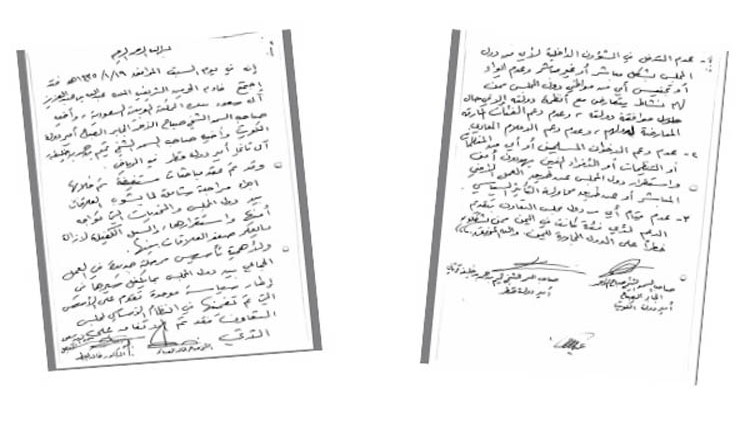 بسم الله الرحمن الرحيم
إنه في يوم السبت الموافق ١٤٣٥/١/١٩هـ فقد
اجتمع خادم الحرمين الشريفين الملك عبدالله بن عبدالعزيز
آل سعود ملك المملكة العربية السعودية، وأخيه
صاحب السمو الشيخ صباح الأحمد الجابر الصباح أمير دولة
الكويت، وأخيه صاحب السمو الشيخ تميم بن حمد بن خليفة
آل ثاني أمير دولة قطر في الرياض.
وقد تم عقد مباحثات مستفيضة تم خلالها
إجراء مراجعة شاملة لما تشوبه العلاقات
بين دول المجلس والتحديات التي تواجه
أمنها واستقرارها، والسبل الكفيلة لإزالة
ما يعكر صفو العلاقات بينها.
ولأهمية تأسيس مرحلة جديدة في العمل
الجماعي بين دول المجلس بما يكفل سيرها في
إطار سياسة موحدة تقوم على الأسس
التي تم تضمينها في النظام الأساسي لمجلس
التعاون فقد تم الاتفاق على
الآتي
١- عدم التدخل في الشؤون الداخلية لأي من دول
المجلس بشكل مباشر أو غير مباشر وعدم إيواء
أو تجنيس أي من مواطني دول المجلس ممن
لهم نشاط يتعارض مع أنظمة دولته إلا في حال
موافقة دولته، وعدم دعم الفئات المارقة
المعارضة لدولهم، وعدم دعم الإعلام المعادي.
٢- عدم دعم الإخوان المسلمين أو أي من المنظمات
أو التنظيمات أو الأفراد الذين يهددون أمن
واستقرار دول المجلس عن طريق العمل الأمني
المباشر أو عن طريق محاولة التأثير السياسي.
٣- عدم قيام أي من دول مجلس التعاون بتقديم
الدعم لأي فئة كانت في اليمن ممن يشكلون
خطراً على الدول المجاورة لليمن. والله الموفق
صاحب السمو الشيخ صباح الأحمد
الجابر الصباح
أمير دولة الكويت
صاحب السمو الشيخ تميم بن حمد بن خليفة آل ثاني
أمير دولة قطر